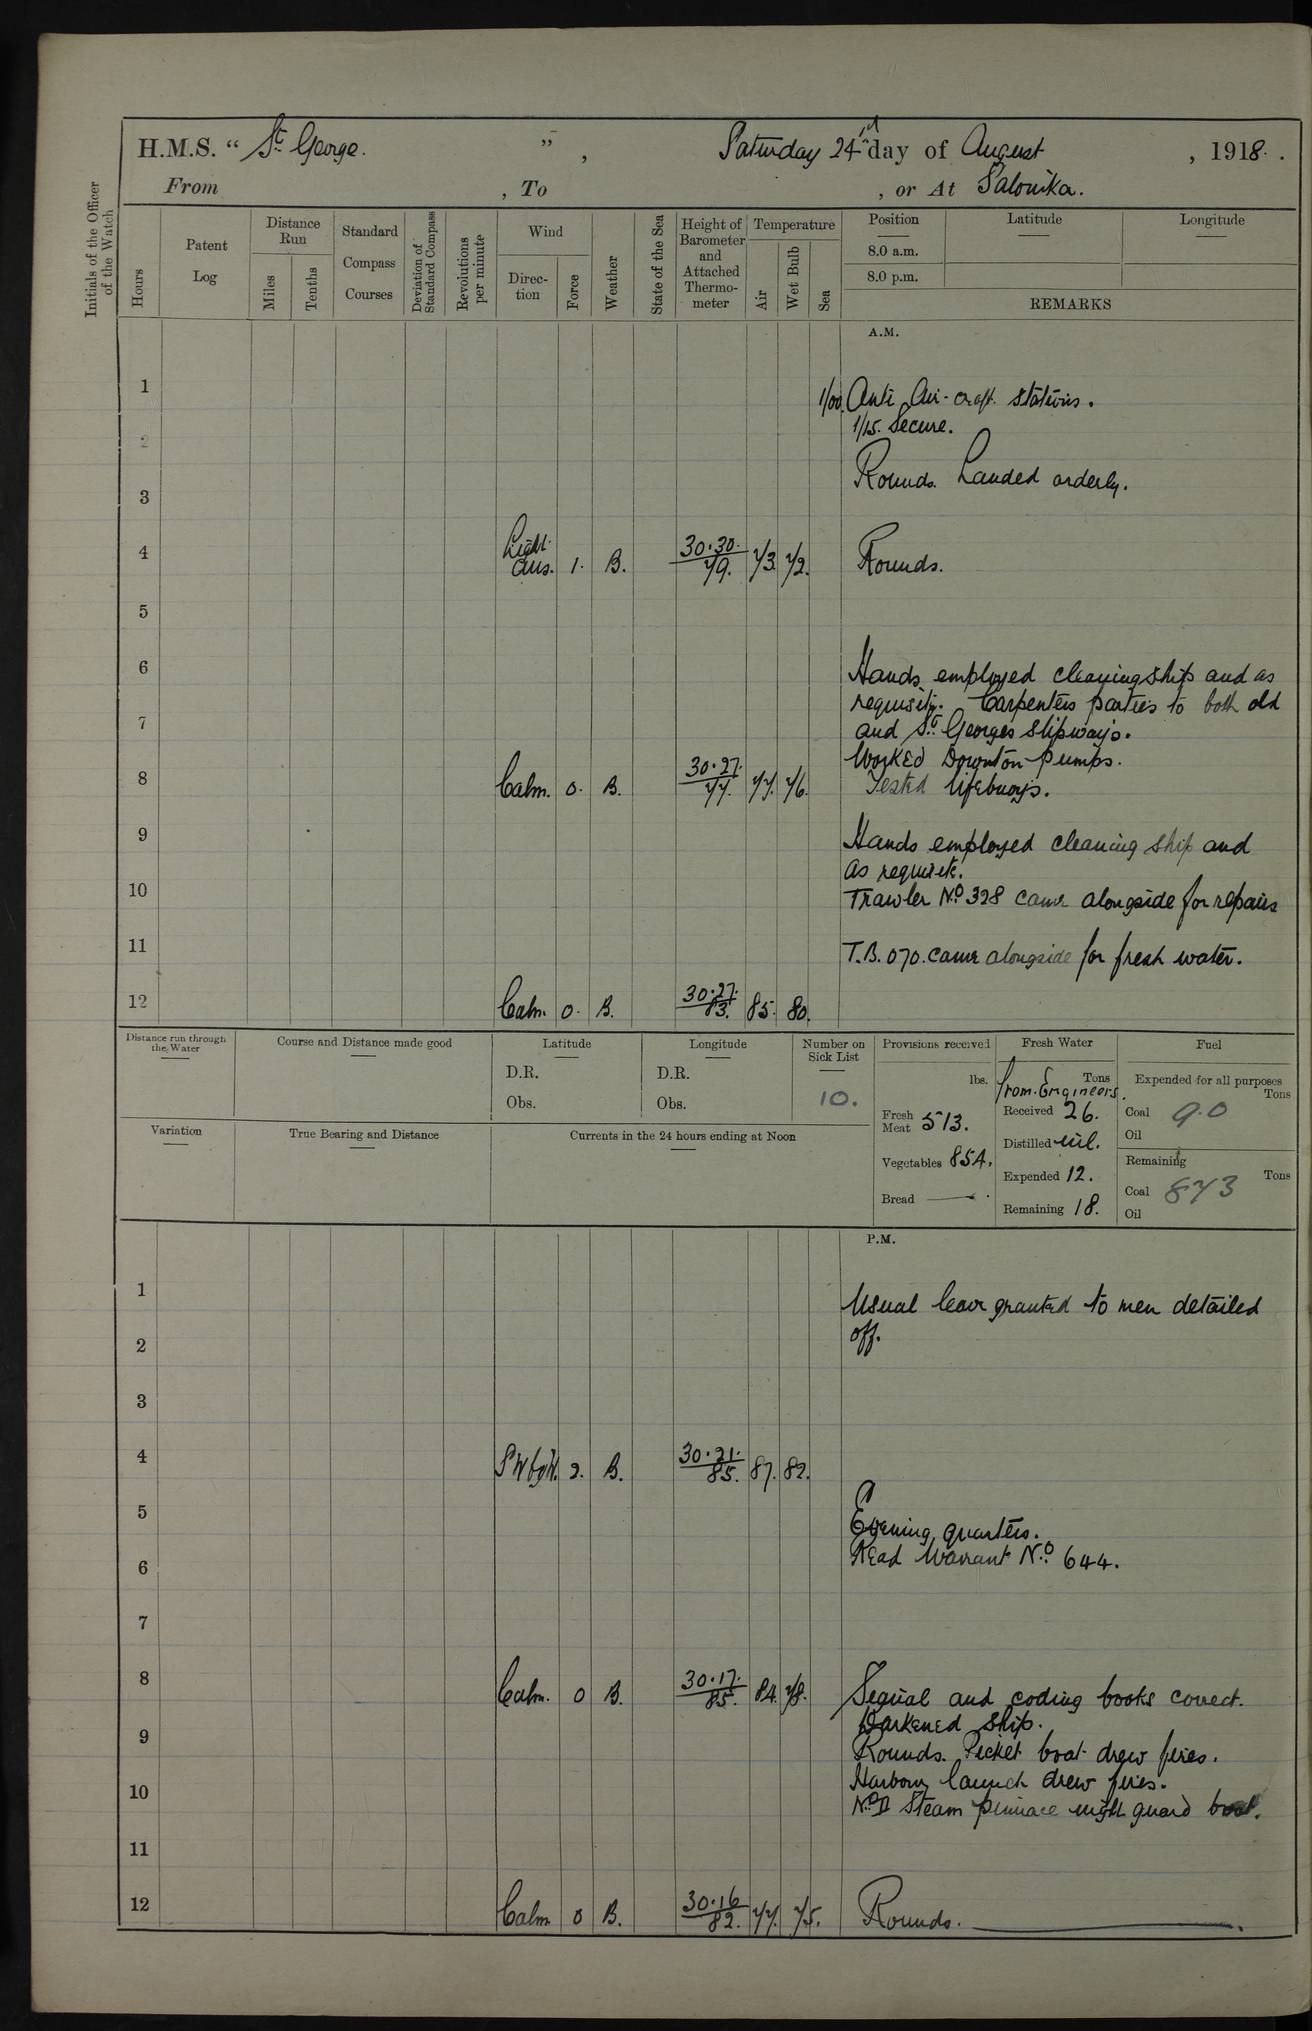 H.M.S. “ St George. ” , Saturday 24th day of August , 1918 .
From , To , or At Salonika.
Initials of the Officer of the Watch
Hours
Patent Log
Distance Run
Miles
Tenths
Standard Compass Courses
Deviation of Standard Compass
Revolutions per minute
Wind
Direc- tion
Force
Weather
State of the Sea
Height of Barometer and Attached Thermo- meter
Temperature
Air
Wet Bulb
Sea
Position
Latitude
Longitude
8.0 a.m.
8.0 p.m.
REMARKS
A.M.
1 1/00. Anti Air-craft stations.
1/15. Secure.
2
Rounds. Landed orderly.
3
4 Light airs. 1. B. 30.30. 79. 73. 72. Rounds.
5
6
Hands employed cleaning ship and as
requisite. Carpenters parties to both old
7
and St Georges slipways.
Worked Downton pumps.
8 Calm. 0. B. 30.27. 77. 77. 76. Tested lifebuoys.
9
Hands employed cleaning ship and
as requisite.
10
Trawler No 328 came alongside for repairs
11
T.B. 070. came alongside for fresh water.
12 Calm. 0. B. 30.27. 83. 85. 80.
Distance run through the Water
Course and Distance made good
Latitude
D.R.
Obs.
Longitude
D.R.
Obs.
Number on Sick List
10.
Provisions received
lbs.
Fresh Meat 513.
Vegetables 854.
Bread —
Fresh Water
Tons
from Engineers.
Received 26.
Distilled nil.
Expended 12.
Remaining 18.
Fuel
Expended for all purposes
Tons
Coal 9.0
Oil
Remaining
Tons
Coal 873
Oil
Variation
True Bearing and Distance
Currents in the 24 hours ending at Noon
P.M.
1
Usual leave granted to men detailed
2 off.
3
4 SWbyW. 2. B. 30.21. 85. 87. 82.
5
Evening quarters.
Read Warrant No. 644.
6
7
8 Calm. 0 B. 30.17. 85. 84. 78. Signal and coding books correct.
Darkened ship.
9
Rounds. Picket boat drew fires.
Harbour launch drew fires.
10
No II Steam pinnace night guard boat.
11
12 Calm 0 B. 30.16 82. 77. 75. Rounds.